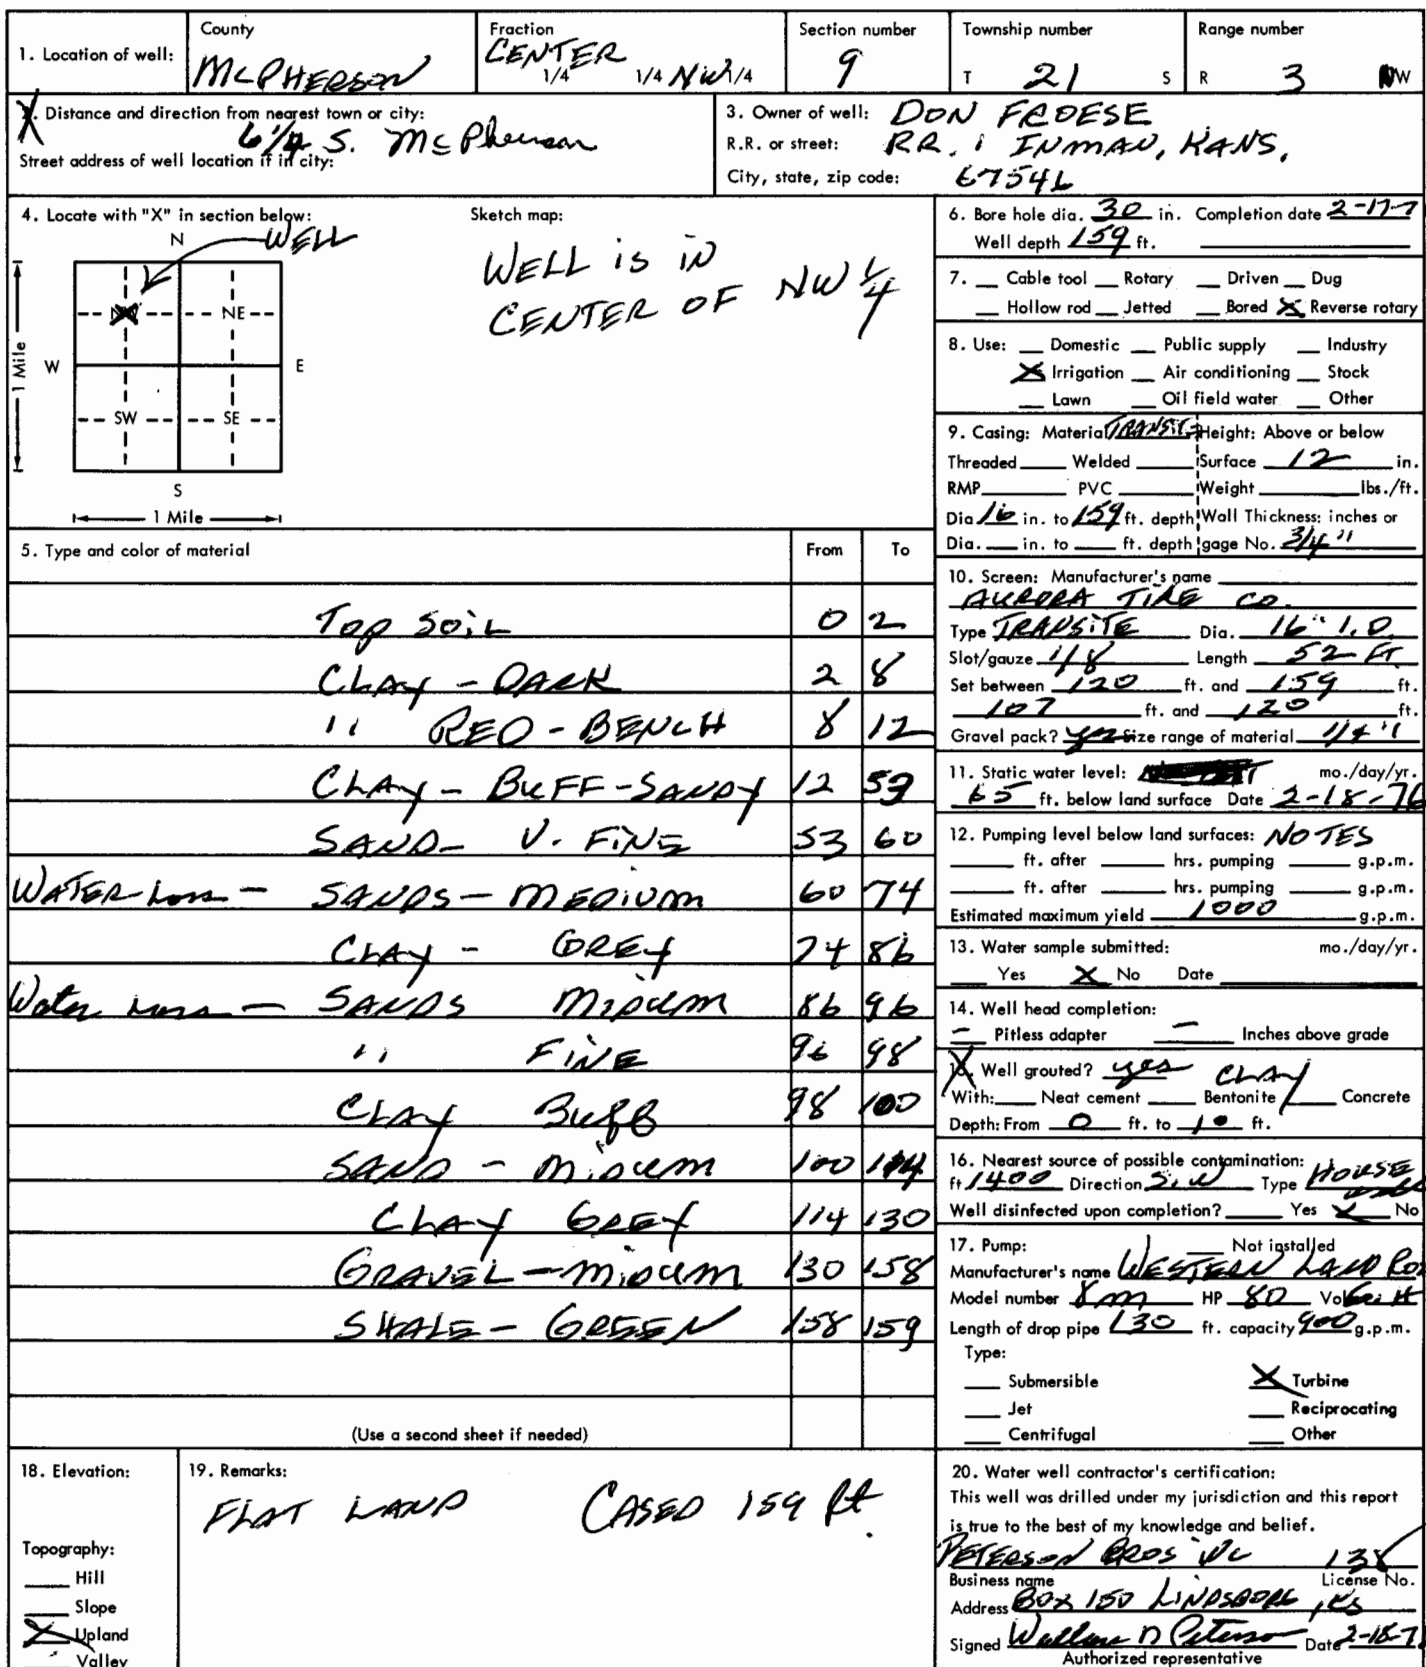 County
Fraction
Section number
Township number
Range number
1. Location of well:
McPHERSON
CENTER
1/4 1/4 NW 1/4
9
T 21 S
R 3 W
2. Distance and direction from nearest town or city:
6 1/4 S. McPherson
Street address of well location if in city:
3. Owner of well: DON FROESE
R.R. or street: RR. 1 INMAN, KANS,
City, state, zip code: 67546
4. Locate with "X" in section below:
Sketch map:
N
WELL
NE
W
E
SW
SE
S
1 Mile
1 Mile
WELL is iN
CENTER OF NW 1/4
6. Bore hole dia. 30 in. Completion date 2-17-7
Well depth 159 ft.
7. Cable tool Rotary Driven Dug
Hollow rod Jetted Bored X Reverse rotary
8. Use: Domestic Public supply Industry
X Irrigation Air conditioning Stock
Lawn Oil field water Other
9. Casing: Material TRANSITE Height: Above or below
Threaded Welded Surface 12 in.
RMP PVC Weight lbs./ft.
Dia 16 in. to 159 ft. depth Wall Thickness: inches or
Dia. in. to ft. depth gage No. 3/4"
5. Type and color of material From To
TOP SOIL 0 2
CLAY - DARK 2 8
" RED - BENCH 8 12
CLAY - BUFF - SANDY 12 53
SAND - V. FINE 53 60
WATER Loss - SANDS - MEDIUM 60 74
CLAY - GREY 74 86
Water Loss - SANDS MIDIUM 86 96
" FINE 96 98
CLAY Buff 98 100
SAND - MIDIUM 100 114
CLAY GREY 114 130
GRAVEL - MIDIUM 130 158
SHALE - GREEN 158 159
(Use a second sheet if needed)
10. Screen: Manufacturer's name
AURORA TIRE CO.
Type TRANSITE Dia. 16" I.D.
Slot/gauze 1/8 Length 52 FT
Set between 120 ft. and 159 ft.
107 ft. and 120 ft.
Gravel pack? yes Size range of material 1/4"
11. Static water level: mo./day/yr.
65 ft. below land surface Date 2-18-76
12. Pumping level below land surfaces: NO TES
ft. after hrs. pumping g.p.m.
ft. after hrs. pumping g.p.m.
Estimated maximum yield 1000 g.p.m.
13. Water sample submitted: mo./day/yr.
Yes X No Date
14. Well head completion:
- Pitless adapter - Inches above grade
15. Well grouted? yes CLAY
With: Neat cement Bentonite Concrete
Depth: From 0 ft. to 10 ft.
16. Nearest source of possible contamination:
ft 1400 Direction S.W Type HOUSE
Well disinfected upon completion? Yes X No
17. Pump: Not installed
Manufacturer's name WESTERN LAND RO
Model number 8m HP 80 Vol
Length of drop pipe 130 ft. capacity 900 g.p.m.
Type:
Submersible X Turbine
Jet Reciprocating
Centrifugal Other
18. Elevation:
Topography:
Hill
Slope
X Upland
Valley
19. Remarks:
FLAT LAND CASED 159 ft.
20. Water well contractor's certification:
This well was drilled under my jurisdiction and this report
is true to the best of my knowledge and belief.
PETERSON BROS INC 138
Business name License No.
Address BOX 150 LINDSBORG, KS
Signed Wallace D Peterson Date 2-18-7
Authorized representative